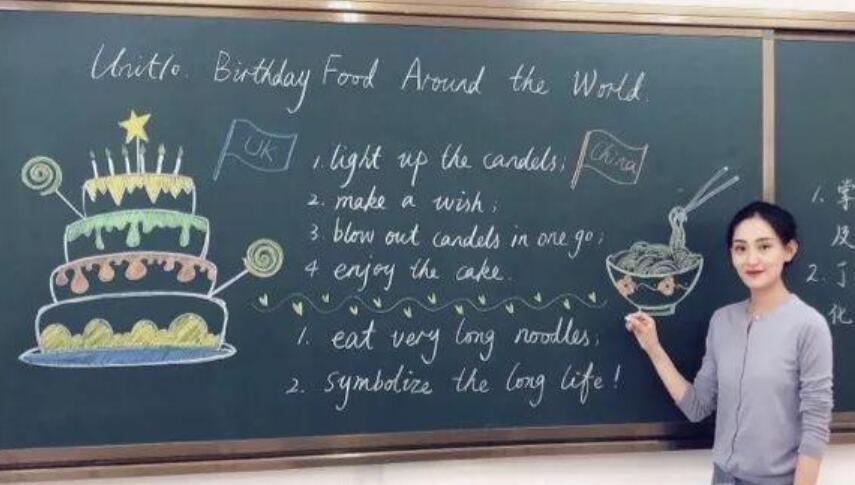 Unit10. Birthday Food Around the World.
UK
China
1. light up the candels;
2. make a wish;
3 blow out candels in one go;
4 enjoy the cake.
1. eat very long noodles;
2. symbolize the long life!
1. 掌
及
2. 了
化